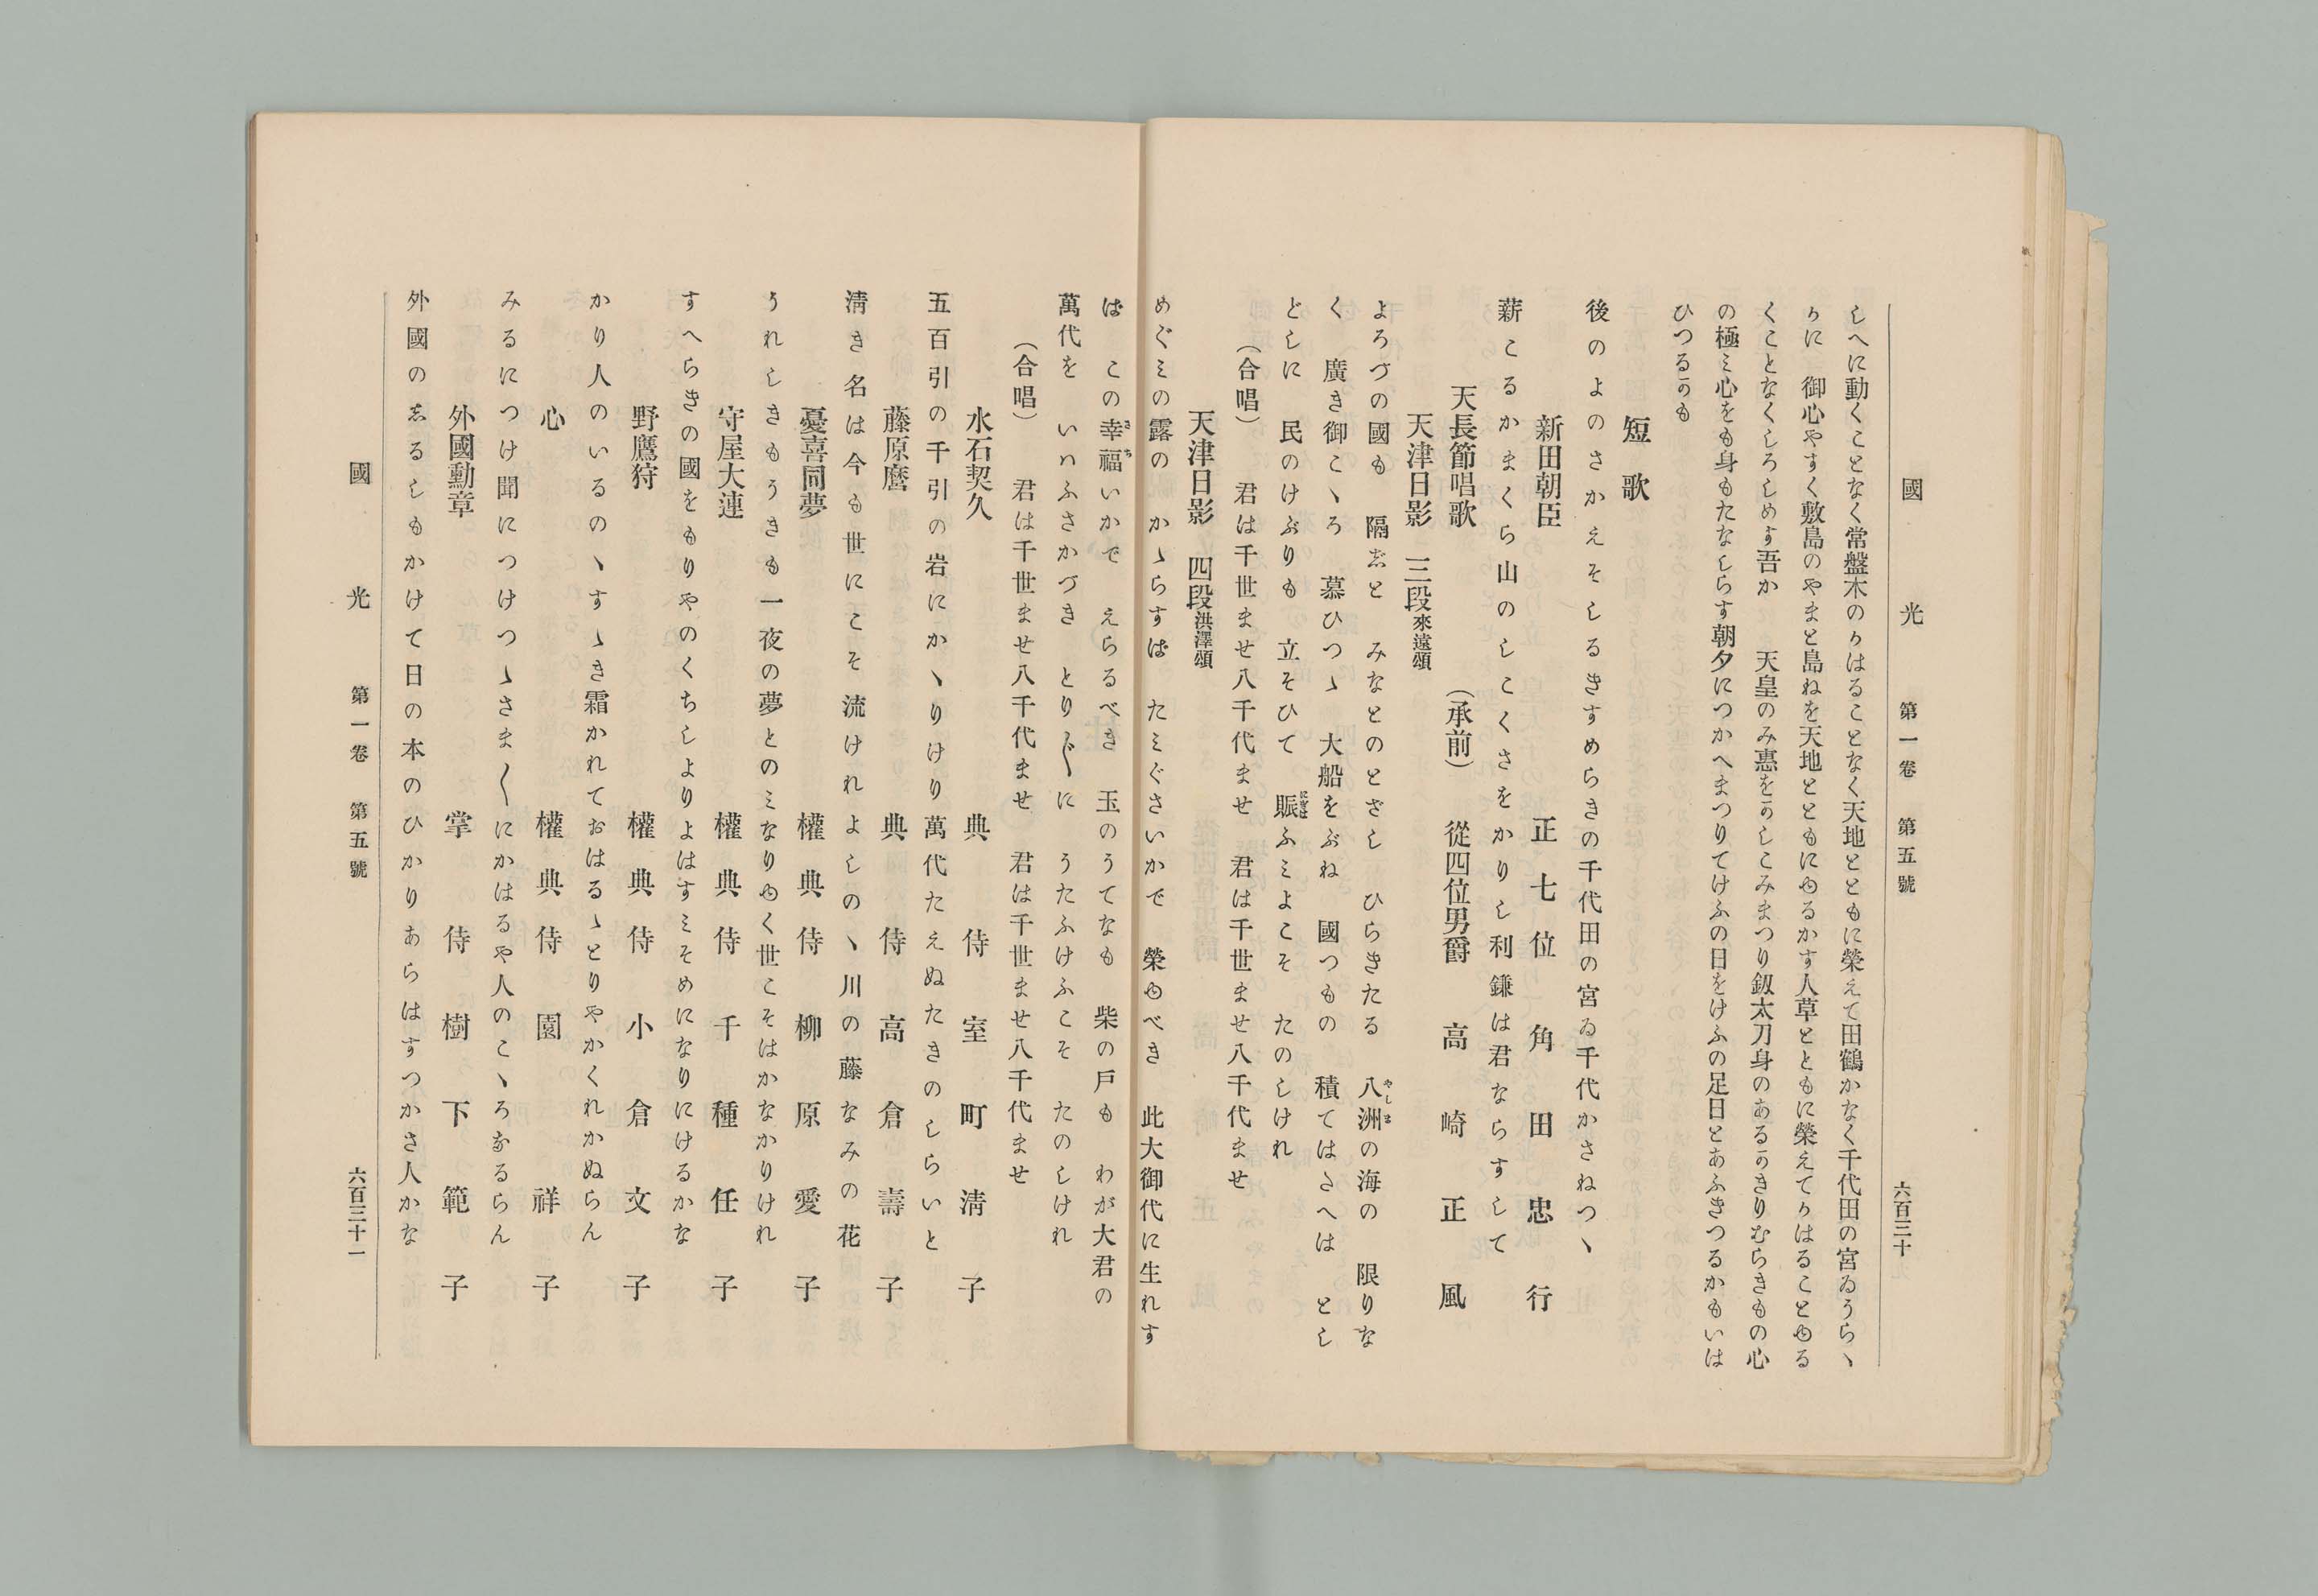 國光　第一卷　第五號　六百三十
しへに動くことなく常盤木のかはることなく天地とともに榮えて田鶴かなく千代田の宮ゐうらヽ
かに　御心やすく敷島のやまと島ねを天地とともにゆるかす人草とともに榮えてかはることゆる
くことなくしろしめす吾か　天皇のみ惠をかしこみまつり釼太刀身のあるかきりむらきもの心
の極ミ心をも身もたなしらす朝夕につかへまつりてけふの日をけふの足日とあふきつるかもいは
ひつるかも
短歌
後のよのさかえそしるきすめらきの千代田の宮ゐ千代かさねつヽ
新田朝臣　正七位　角田忠行
薪こるかまくら山のしこくさをかりし利鎌は君ならすして
天長節唱歌　（承前）　從四位男爵　高崎正風
天津日影　三段來遠頌
よろづの國も　隔志と　みなとのとざし　ひらきたる　八洲の海の　限りな
やしま
く　廣き御こヽろ　慕ひつヽ　大船をぶね　國つもの　積てはさへは　とし
どしに　民のけぶりも　立そひて　賑ふミよこそ　たのしけれ
にぎは
（合唱）　君は千世ませ八千代ませ　君は千世ませ八千代ませ
天津日影　四段洪澤頌
めぐミの露の　かヽらすば　たミぐさいかで　榮ゆべき　此大御代に生れす
ば　この幸福いかで　えらるべき　玉のうてなも　柴の戸も　わが大君の
さち
萬代を　いハふさかづき　とり〴〵に　うたふけふこそ　たのしけれ
（合唱）　君は千世ませ八千代ませ　君は千世ませ八千代ませ
水石契久　典侍　室町淸子
五百引の千引の岩にかヽりけり萬代たえぬたきのしらいと
藤原麿　典侍　高倉壽子
淸き名は今も世にこそ流けれよしのヽ川の藤なみの花
憂喜同夢　權典侍　柳原愛子
うれしきもうきも一夜の夢とのミなりゆく世こそはかなかりけれ
守屋大連　權典侍　千種任子
すへらきの國をもりやのくちしよりよはすミそめになりにけるかな
野鷹狩　權典侍　小倉文子
かり人のいるのヽすヽき霜かれておはるヽとりやかくれかぬらん
心　權典侍　園祥子
みるにつけ聞につけつヽさま〱にかはるや人のこヽろなるらん
外國勳章　掌侍　樹下範子
外國の志るしもかけて日の本のひかりあらはすつかさ人かな
國光　第一卷　第五號　六百三十一